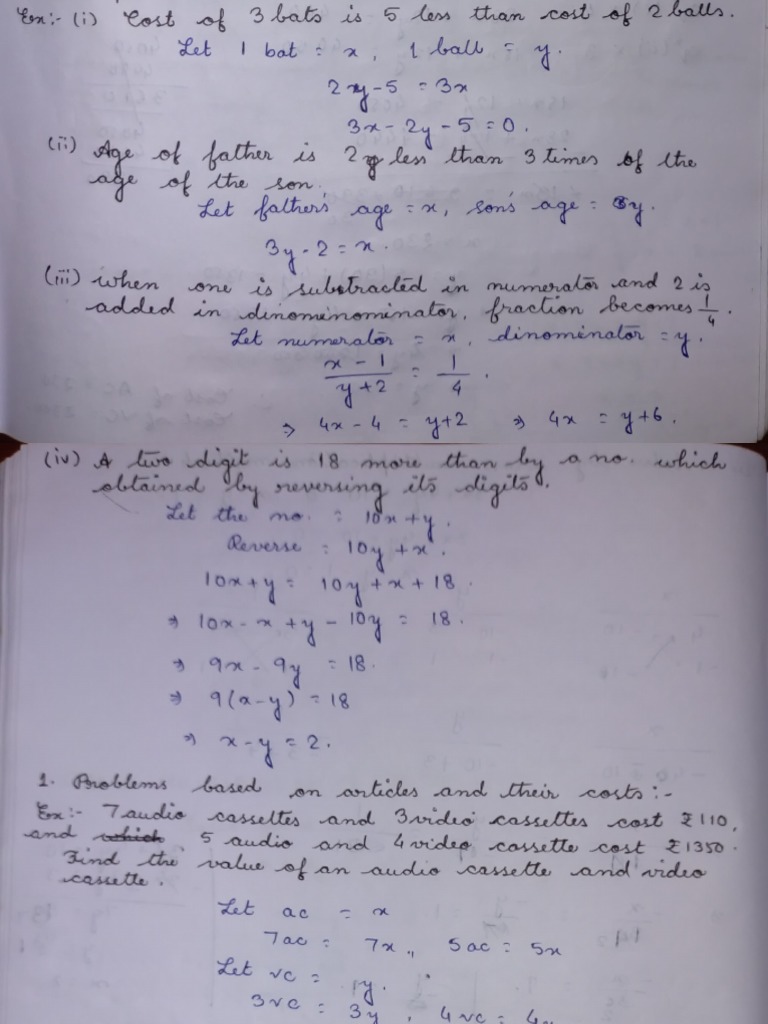 Ex:- (i) Cost of 3 bats is 5 less than cost of 2 balls.
Let 1 bat = x, 1 ball = y.
2y-5 = 3x
3x-2y-5=0.
(ii) Age of father is 2 less than 3 times of the
age of the son.
Let father's age = x, son's age = y.
3y-2 = x.
(iii) when one is substracted in numerator and 2 is
added in dinominominator, fraction becomes 1/4.
Let numerator = x, dinominator = y.
(x-1)/(y+2) = 1/4.
⇒ 4x-4 = y+2 ⇒ 4x = y+6.
(iv) A two digit is 18 more than by a no. which
obtained by reversing its digits.
Let the no. = 10x+y.
Reverse = 10y+x.
10x+y = 10y+x+18.
⇒ 10x-x+y-10y = 18.
⇒ 9x-9y = 18.
⇒ 9(x-y) = 18
⇒ x-y = 2.
1. Problems based on articles and their costs:-
Ex:- 7 audio cassettes and 3 video cassettes cost ₹110,
and which 5 audio and 4 video cassette cost ₹1350.
Find the value of an audio cassette and video
cassette.
Let ac = x
7ac = 7x,, 5ac = 5x
Let vc = y.
3vc = 3y, 4vc =